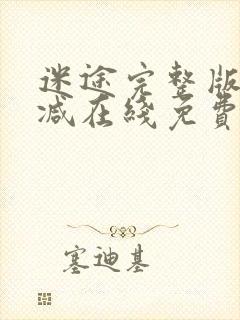 迷途完整版
减在线免費
塞迪基